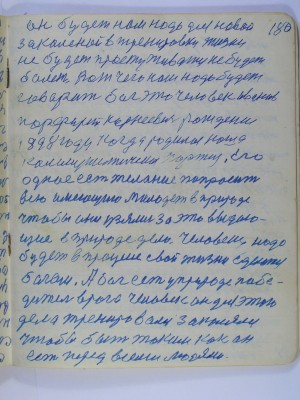 180
он будет нам надо для новой
закалкой тренировки жизни
не будет простуживатся не будет
болеть. Вот чего нам надо будет
говорит бог это человек Иванов
Порфирий Корнеевич рождения
1898 году Когда родилась наша
Коммунистическая партия, Его
одное есть желание попросить
всю имеющую молодежь в природе
чтобы они взялись за это выдаю-
щие в природе дело. Человеку надо
будет в процессе свой жизни сделать
богам. А бог есть у природе побе-
дитель врага человек он для этого
дела тренировался закалялся
чтобы быть таким как он
есть перед всеми людями.